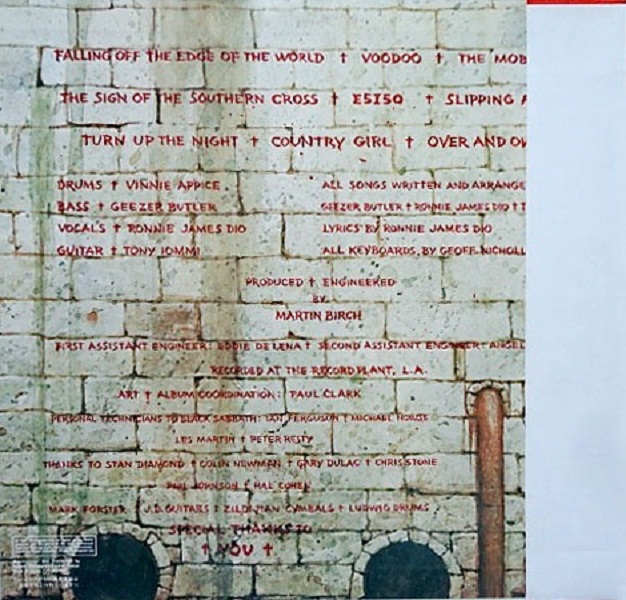 FALLING OFF THE EDGE OF THE WORLD † VOODOO † THE MOB
THE SIGN OF THE SOUTHERN CROSS † E5150 † SLIPPING A
TURN UP THE NIGHT † COUNTRY GIRL † OVER AND OV
DRUMS † VINNIE APPICE
BASS † GEEZER BUTLER
VOCAL'S † RONNIE JAMES DIO
GUITAR † TONY IOMMI
ALL SONGS WRITTEN AND ARRANGE
GEEZER BUTLER † RONNIE JAMES DIO † T
LYRICS BY RONNIE JAMES DIO
ALL KEYBOARDS, BY GEOFF NICHOLL
PRODUCED † ENGINEERED
BY
MARTIN BIRCH
FIRST ASSISTANT ENGINEER: EDDIE DELENA † SECOND ASSISTANT ENGINEER: ANGEL
RECORDED AT THE RECORD PLANT, L.A.
ART † ALBUM COORDINATION: PAUL CLARK
PERSONAL TECHNICIANS TO BLACK SABBATH: IAN FERGUSON † MICHAEL HOWSE
LES MARTIN † PETER RESTY
THANKS TO STAN DIAMOND † COLIN NEWMAN † GARY DULAC † CHRIS STONE
PAUL JOHNSON † HAL COHEN
MARK FORSTER † J.D. GUITARS † ZILDJIAN CYMBALS † LUDWIG DRUMS
SPECIAL THANKS TO
† YOU †